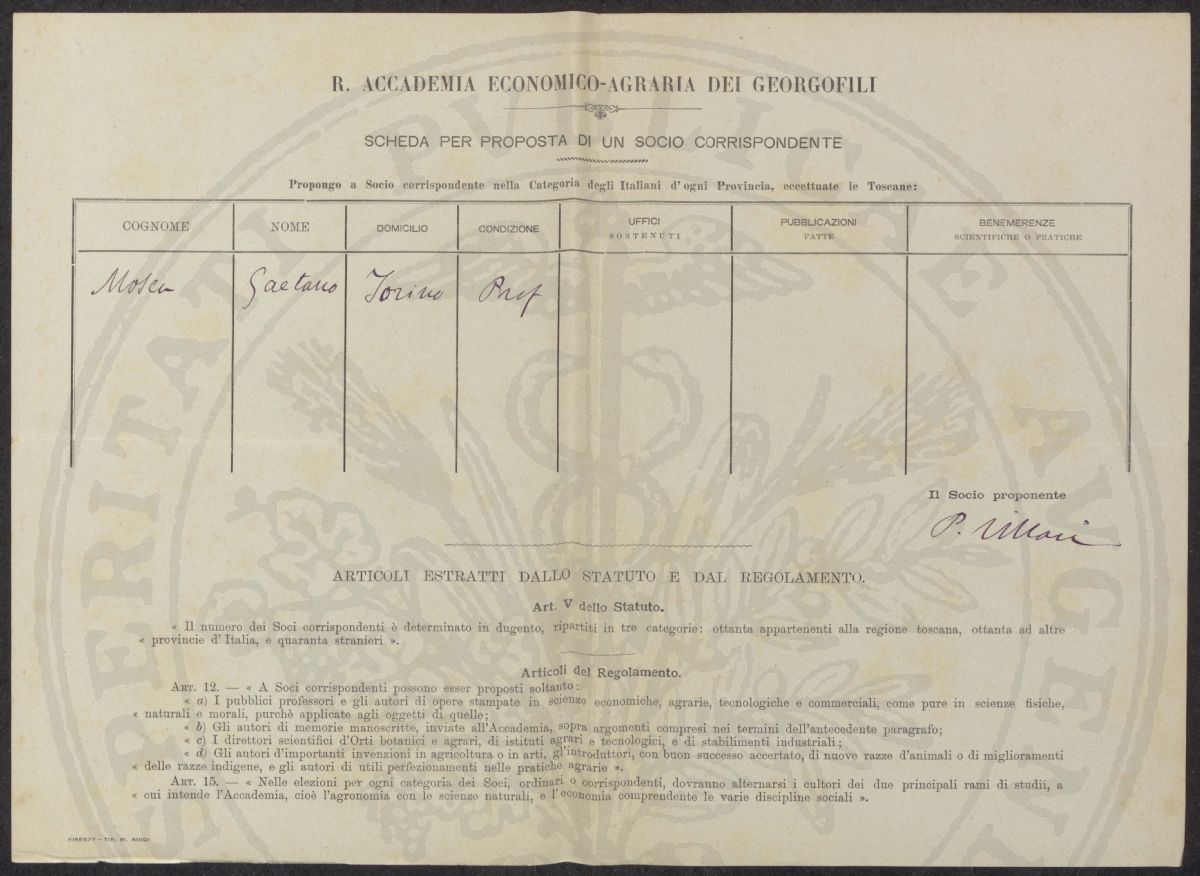 R. ACCADEMIA ECONOMICO-AGRARIA DEI GEORGOFILI
SCHEDA PER PROPOSTA DI UN SOCIO CORRISPONDENTE
Propongo a Socio corrispondente nella Categoria degli Italiani d'ogni Provincia, eccettuate le Toscane:
COGNOME NOME DOMICILIO CONDIZIONE UFFICI SOSTENUTI PUBBLICAZIONI FATTE BENEMERENZE SCIENTIFICHE O PRATICHE
Mosca Gaetano Torino Prof
Il Socio proponente
P. Villari
ARTICOLI ESTRATTI DALLO STATUTO E DAL REGOLAMENTO.
Art. V dello Statuto.
« Il numero dei Soci corrispondenti è determinato in dugento, ripartiti in tre categorie: ottanta appartenenti alla regione toscana, ottanta ad altre
« provincie d'Italia, e quaranta stranieri ».
Articoli del Regolamento.
ART. 12. — « A Soci corrispondenti possono esser proposti soltanto:
« a) I pubblici professori e gli autori di opere stampate in scienze economiche, agrarie, tecnologiche e commerciali, come pure in scienze fisiche,
« naturali e morali, purchè applicate agli oggetti di quelle;
« b) Gli autori di memorie manoscritte, inviate all'Accademia, sopra argomenti compresi nei termini dell'antecedente paragrafo;
« c) I direttori scientifici d'Orti botanici e agrari, di istituti agrari e tecnologici, e di stabilimenti industriali;
« d) Gli autori d'importanti invenzioni in agricoltura o in arti, gl'introduttori, con buon successo accertato, di nuove razze d'animali o di miglioramenti
« delle razze indigene, e gli autori di utili perfezionamenti nelle pratiche agrarie ».
ART. 15. — « Nelle elezioni per ogni categoria dei Soci, ordinari o corrispondenti, dovranno alternarsi i cultori dei due principali rami di studii, a
« cui intende l'Accademia, cioè l'agronomia con le scienze naturali, e l'economia comprendente le varie discipline sociali ».
FIRENZE - TIP. M. RICCI